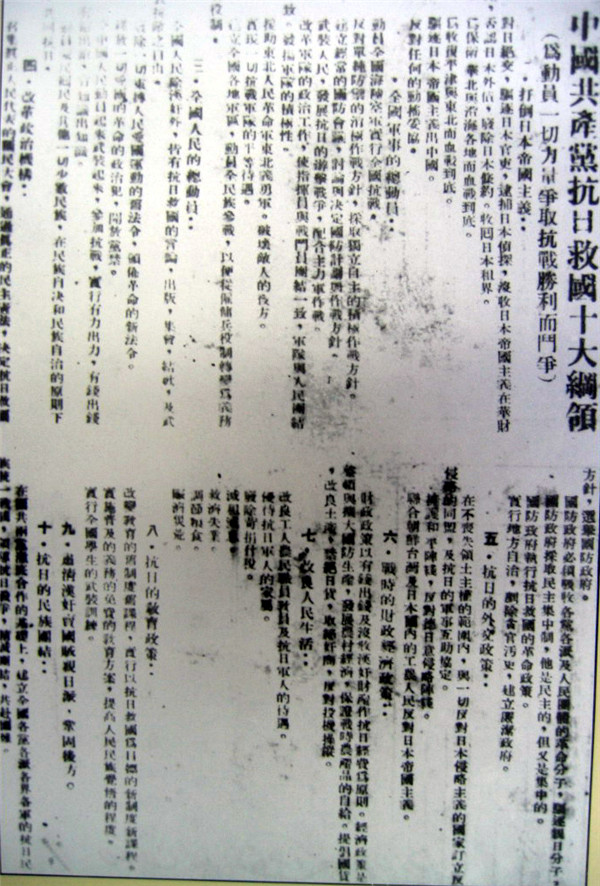 中國共產黨抗日救國十大綱領
(爲動員一切力量爭取抗戰勝利而鬥爭)
一・打倒日本帝國主義：
對日絕交，驅逐日本官吏，逮捕日本偵探，沒收日本帝國主義在華財
否認日本外債，廢除日本條約。收回日本租界。
爲保衛華北與沿海各地而血戰到底。
爲收復平津與東北而血戰到底。
驅逐日本帝國主義出中國。
反對任何的動搖妥協。
全國軍事的總動員：
動員全國海陸空軍實行全國抗戰。
反對單純防禦的消極作戰方針，採取獨立自主的積極作戰方針。
建立經常的國防會議，討論與決定國防計劃與作戰方針。
武裝人民，發展抗日的游擊戰爭，配合主力軍作戰。
改革軍隊的政治工作，使指揮員與戰鬥員團結一致，軍隊與人民團結
致。發揚軍隊的積極性。
援助東北人民革命軍東北義勇軍。破壞敵人的後方。
實現一切抗戰軍隊的平等待遇。
建立全國各地軍區，動員全民族參戰，以便從僱傭兵役制轉變爲義務
役制。
三・全國人民的總動員：
全國人民除漢奸外，皆有抗日救國的言論，出版，集會，結社，及武
之自由。
廢除一切束縛人民愛國運動的舊法令，頒佈革命的新法令。
一切愛國的革命的政治犯，開放黨禁。
中國人民動員起來武裝起來，參加抗戰，實行有力出力，有錢出錢
及其他一切少數民族，在民族自決和民族自治的原則下
共同抗日。
四・改革政治機構：
人民代表的國民大會，通過眞正的民主憲法，決定抗日救國
方針，選舉國防政府。
國防政府必須吸收各黨各派及人民團體的革命分子，驅逐親日分子
國防政府採取民主集中制，他是民主的，但又是集中的。
國防政府執行抗日救國的革命政策。
實行地方自治，剷除貪官污吏，建立廉潔政府。
五・抗日的外交政策：
在不喪失領土主權的範圍內，與一切反對日本侵略主義的國家訂立反
侵略的同盟，及抗日的軍事互助協定。
擁護和平陣綫，反對德日意侵略陣綫。
聯合朝鮮台灣及日本國內的工農人民反對日本帝國主義。
六・戰時的財政經濟政策：
財政政策以有錢出錢及沒收漢奸財產作抗日經費爲原則。經濟政策是
整頓與擴大國防生產，發展農村經濟，保證戰時農產品的自給。提倡國貨
，改良土產，禁絕日貨，取締奸商，反對投機操縱。
七・改良人民生活：
改良工人農民職員教員及抗日軍人的待遇。
優待抗日軍人的家屬。
廢除苛捐什稅。
減租減息。
救濟失業。
調節粮食。
賑濟災荒。
八・抗日的教育政策：
改變教育的舊制度舊課程，實行以抗日救國爲目標的新制度新課程。
實施普及的義務的免費的教育方案，提高人民民族覺悟的程度。
實行全國學生的武裝訓練。
九・肅清漢奸賣國賊親日派，鞏固後方。
十・抗日的民族團結：
在國共兩黨徹底合作的基礎上，建立全國各黨各派各界各軍的抗日民
族統一戰綫，領導抗日戰爭，精誠團結，共赴國難。